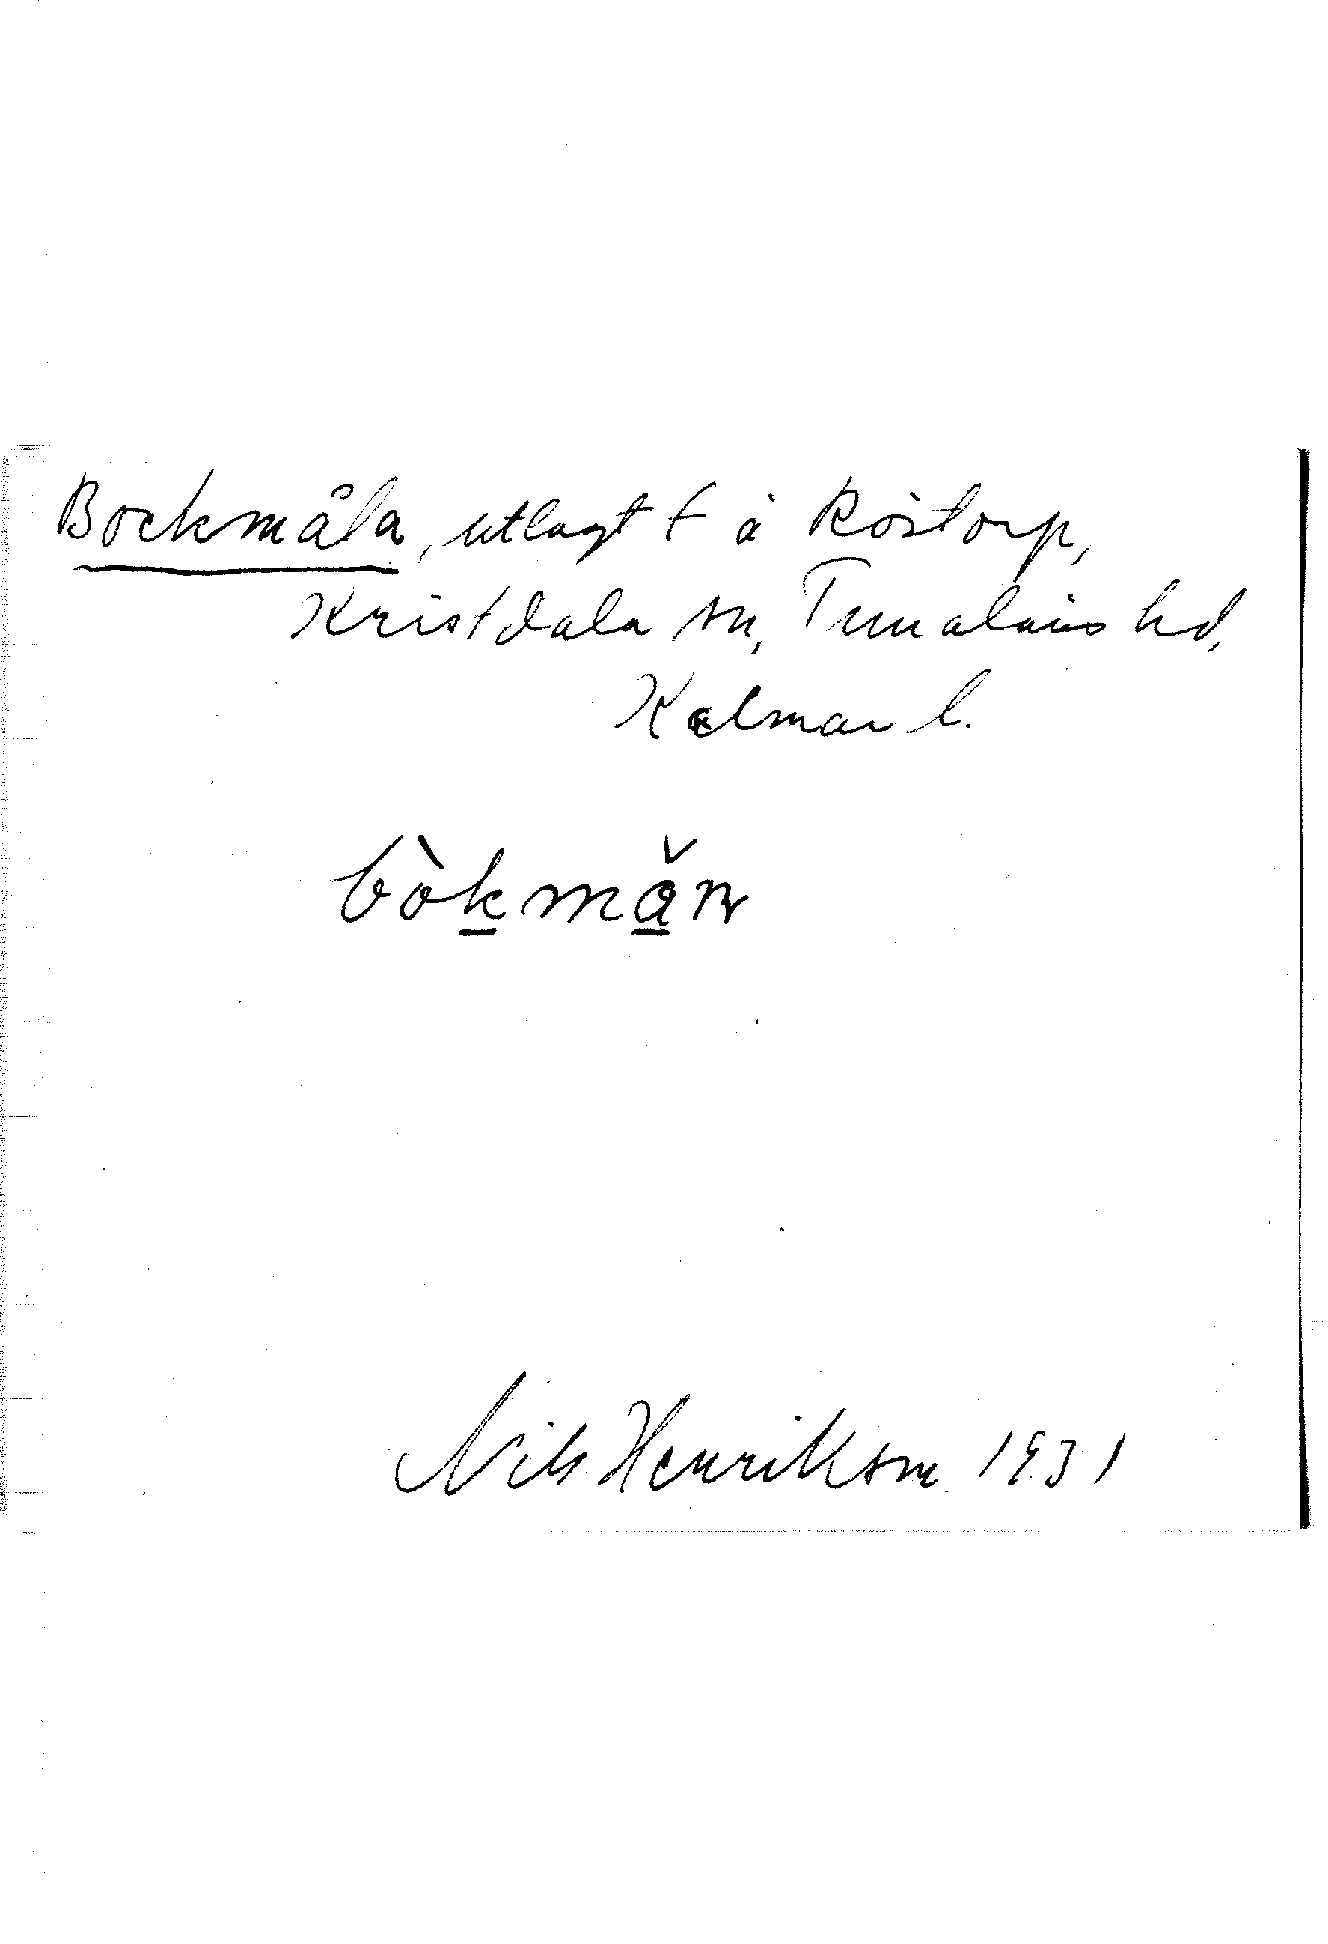 Bockmåla, utlagt t å Röstorp,
Kristdala sn, Tunaläns hd,
Kalmar l.
Nils Henrikson 1931